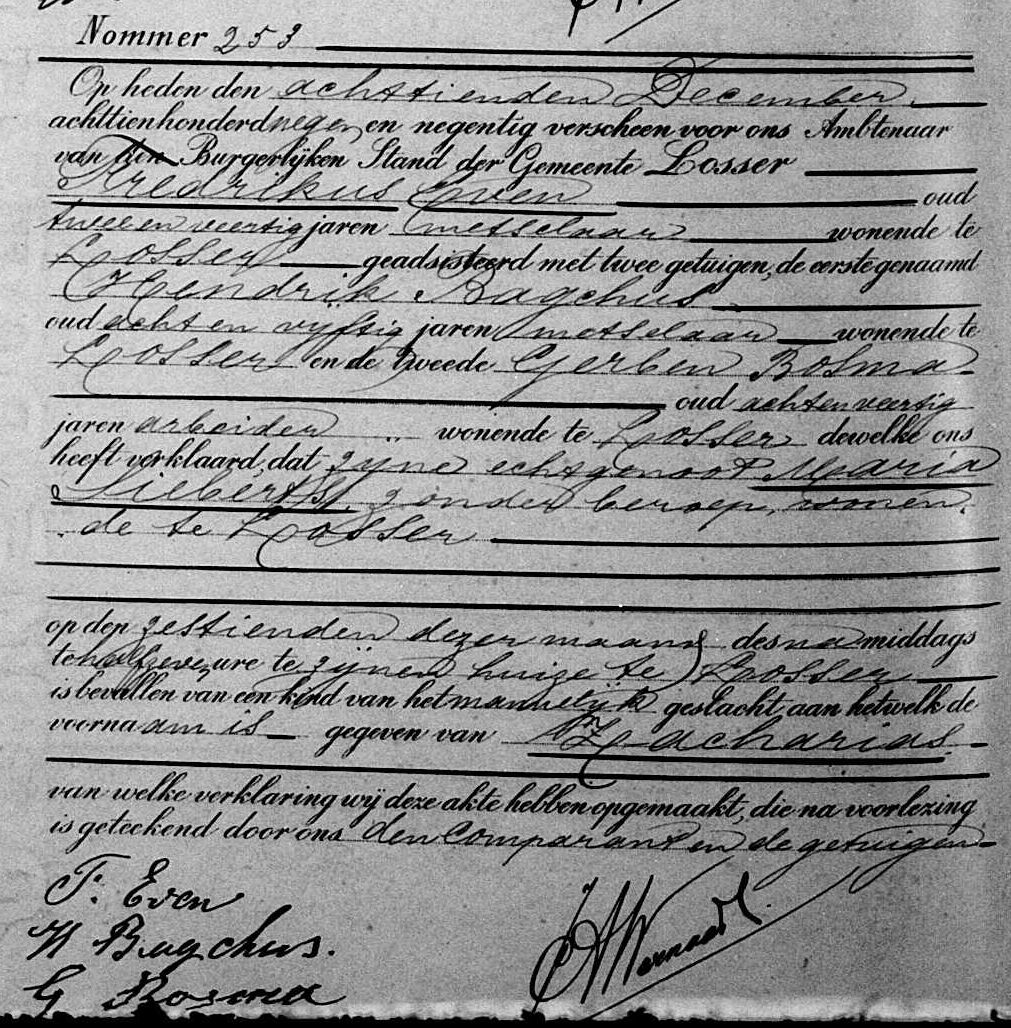 Nommer 253
Op heden den achttienden December
achttienhonderd negen en negentig verscheen voor ons Ambtenaar
van den Burgerlijken Stand der Gemeente Losser
Fredrikus Even oud
twee en veertig jaren metselaar wonende te
Losser geadsisteerd met twee getuigen, de eerste genaamd
Hendrik Bagchus
oud acht en vijftig jaren metselaar wonende te
Losser en de tweede Gerben Bosma
oud acht en veertig
jaren arbeider wonende te Losser dewelke ons
heeft verklaard, dat zijne echtgenoot Maria
Siebert, zonder beroep, wonen,
de te Losser
op den zestienden dezer maand des na middags
te half zeven ure te zijnen huize te Losser
is bevallen van een kind van het mannelijk geslacht aan hetwelk de
voornaam is gegeven van Zacharias
van welke verklaring wij deze akte hebben opgemaakt, die na voorlezing
is geteekend door ons den comparant en de getuigen
F. Even
H Bagchus.
G Bosma